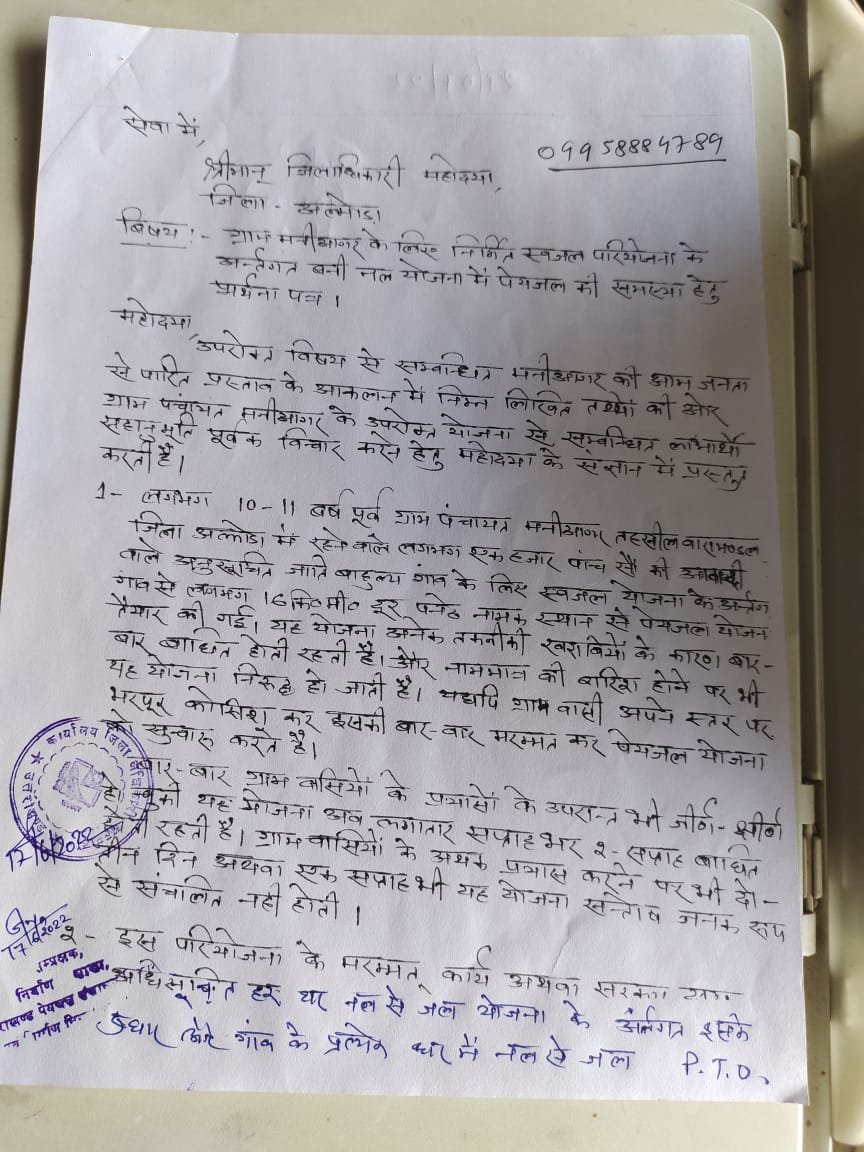 सेवा में,
09958884789
श्रीमान् जिलाधिकारी महोदया,
जिला - अल्मोड़ा
विषय :- ग्राम मनीआगर के लिए निर्मित स्वजल परियोजना के
अर्न्तगत बनी नल योजना में पेयजल की समस्या हेतु
प्रार्थना पत्र ।
महोदया,
उपरोक्त विषय से सम्बन्धित मनीआगर की आम जनता
से पारित प्रस्ताव के आकलन में निम्न लिखित तथ्यों की ओर
ग्राम पंचायत मनीआगर के उपरोक्त योजना से सम्बन्धित लाभार्थी
सहानुभूति पूर्वक विचार करने हेतु महोदया के संज्ञान में प्रस्तुत
करती है।
1- लगभग 10-11 बर्ष पूर्व ग्राम पंचायत मनीआगर तहसील
जिला अल्मोडा में रहने वाले लगभग एक हजार पांच सौ की आबादी
वाले अनुसूचित जाति बाहुल्य गांव के लिए स्वजल योजना के अर्न्तगत
गांव से लगभग 16 कि०मी० दूर नामक स्थान से पेयजल योजना
तैयार की गई। यह योजना अनेक तकनीकी खराबियों के कारण बार-
बार बाधित होती रहती है। और नाममात्र की बारिश होने पर भी
यह योजना निरूद्ध हो जाती है। यद्यपि ग्राम वासी अपने स्तर पर
भरपूर कोशिश कर इसकी बार-बार मरम्मत कर पेयजल योजना
को सुचारु करते है।
बार-बार ग्राम वासियों के प्रयासों के उपरान्त भी जीर्ण-शीर्ण
यह योजना अब लगातार सप्ताह भर २-सप्ताह बाधित
रहती है। ग्राम वासियों के अथक प्रयास करने पर भी दो-
तीन दिन अथवा एक सप्ताह भी यह योजना सन्तोष जनक रूप
से संचालित नही होती ।
२- इस परियोजना के मरम्मत् कार्य अथवा
हर घर नल से जल योजना के अर्न्तगत इसके
गांव के प्रत्येक घर में नल से जल P.T.O.
कार्यालय जिला
17/6/2022
17/6/2022
निर्माण शाखा,